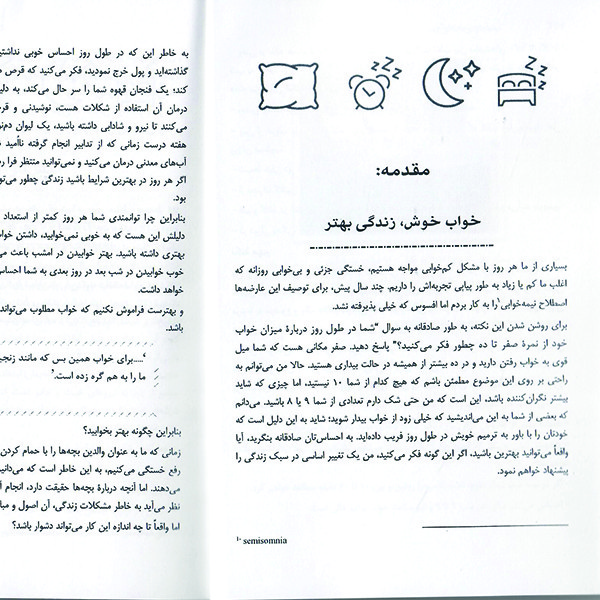 مقدمه:
خواب خوش، زندگی بهتر
بسیاری از ما هر روز با مشکل کم‌خوابی مواجه هستیم، خستگی جزئی و بی‌خوابی روزانه که
اغلب ما کم یا زیاد به طور پیاپی تجربه‌اش را داریم. چند سال پیش، برای توصیف این عارضه‌ها
اصطلاح نیمه‌خوابی۱ را به کار بردم اما افسوس که خیلی پذیرفته نشد.
برای روشن شدن این نکته، به طور صادقانه به سوال "شما در طول روز دربارهٔ میزان خواب
خود از نمرهٔ صفر تا ده چطور فکر می‌کنید؟" پاسخ دهید. صفر مکانی هست که شما میل
قوی به خواب رفتن دارید و در ده بیشتر از همیشه در حالت بیداری هستید. حالا من می‌توانم به
راحتی بر روی این موضوع مطمئن باشم که هیچ کدام از شما ۱۰ نیستید. اما چیزی که شاید
بیشتر نگران‌کننده باشد، این است که من حتی شک دارم تعدادی از شما ۹ یا ۸ باشید. می‌دانم
که بعضی از شما به این می‌اندیشید که خیلی زود از خواب بیدار شوید؛ شاید به این دلیل است که
خودتان را با باور به ترمیم خویش در طول روز فریب داده‌اید. به احساس‌تان صادقانه بنگرید، آیا
واقعاً می‌توانید بهترین باشید. اگر این گونه فکر می‌کنید، من یک تغییر اساسی در سبک زندگی را
پیشنهاد خواهم نمود.
1- semisomnia
به خاطر این که در طول روز احساس خوبی نداشتید
گذاشته‌اید و پول خرج نمودید، فکر می‌کنید که قرص
کند؛ یک فنجان قهوه شما را سر حال می‌کند، به
درمان آن استفاده از شکلات هست، نوشیدنی و
می‌کنند تا نیرو و شادابی داشته باشید، یک لیوان
هفته درست زمانی که از تدابیر انجام گرفته ناامید
آب‌های معدنی درمان می‌کنید و نمی‌توانید منتظر فرا
اگر هر روز در بهترین شرایط باشید زندگی چطور
بود.
بنابراین چرا توانمندی شما هر روز کمتر از استعداد
دلیلش این هست که به خوبی نمی‌خوابید، داشتن
بهتری داشته باشید. بهتر خوابیدن در امشب باعث
خوب خوابیدن در شب بعد در روز بعدی به شما احساس
خواهد داشت.
و بهترست فراموش نکنیم که خواب مطلوب می‌تواند
باشد.
'.....برای خواب همین بس که مانند
ما را به هم گره زده است.'
بنابراین چگونه بهتر بخوابید؟
زمانی که ما به عنوان والدین بچه‌ها را با حمام کردن
رفع خستگی می‌کنیم، به این خاطر است که
می‌دهند. اما آنچه دربارهٔ بچه‌ها حقیقت دارد، انجام
نظر می‌آید به خاطر مشکلات زندگی، آن اصول و
اما واقعاً تا چه اندازه این کار می‌تواند دشوار باشد؟